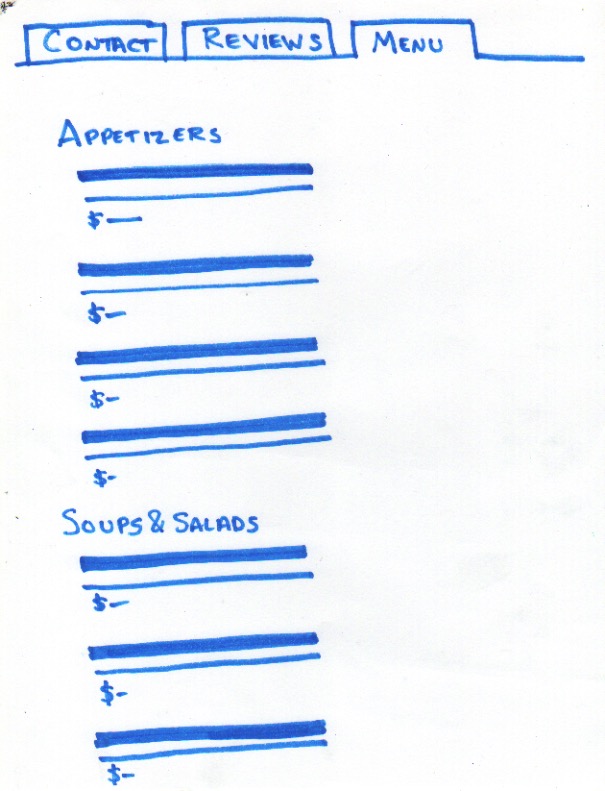 CONTACT REVIEWS MENU
APPETIZERS
$
$
$
$
SOUPS & SALADS
$
$
$